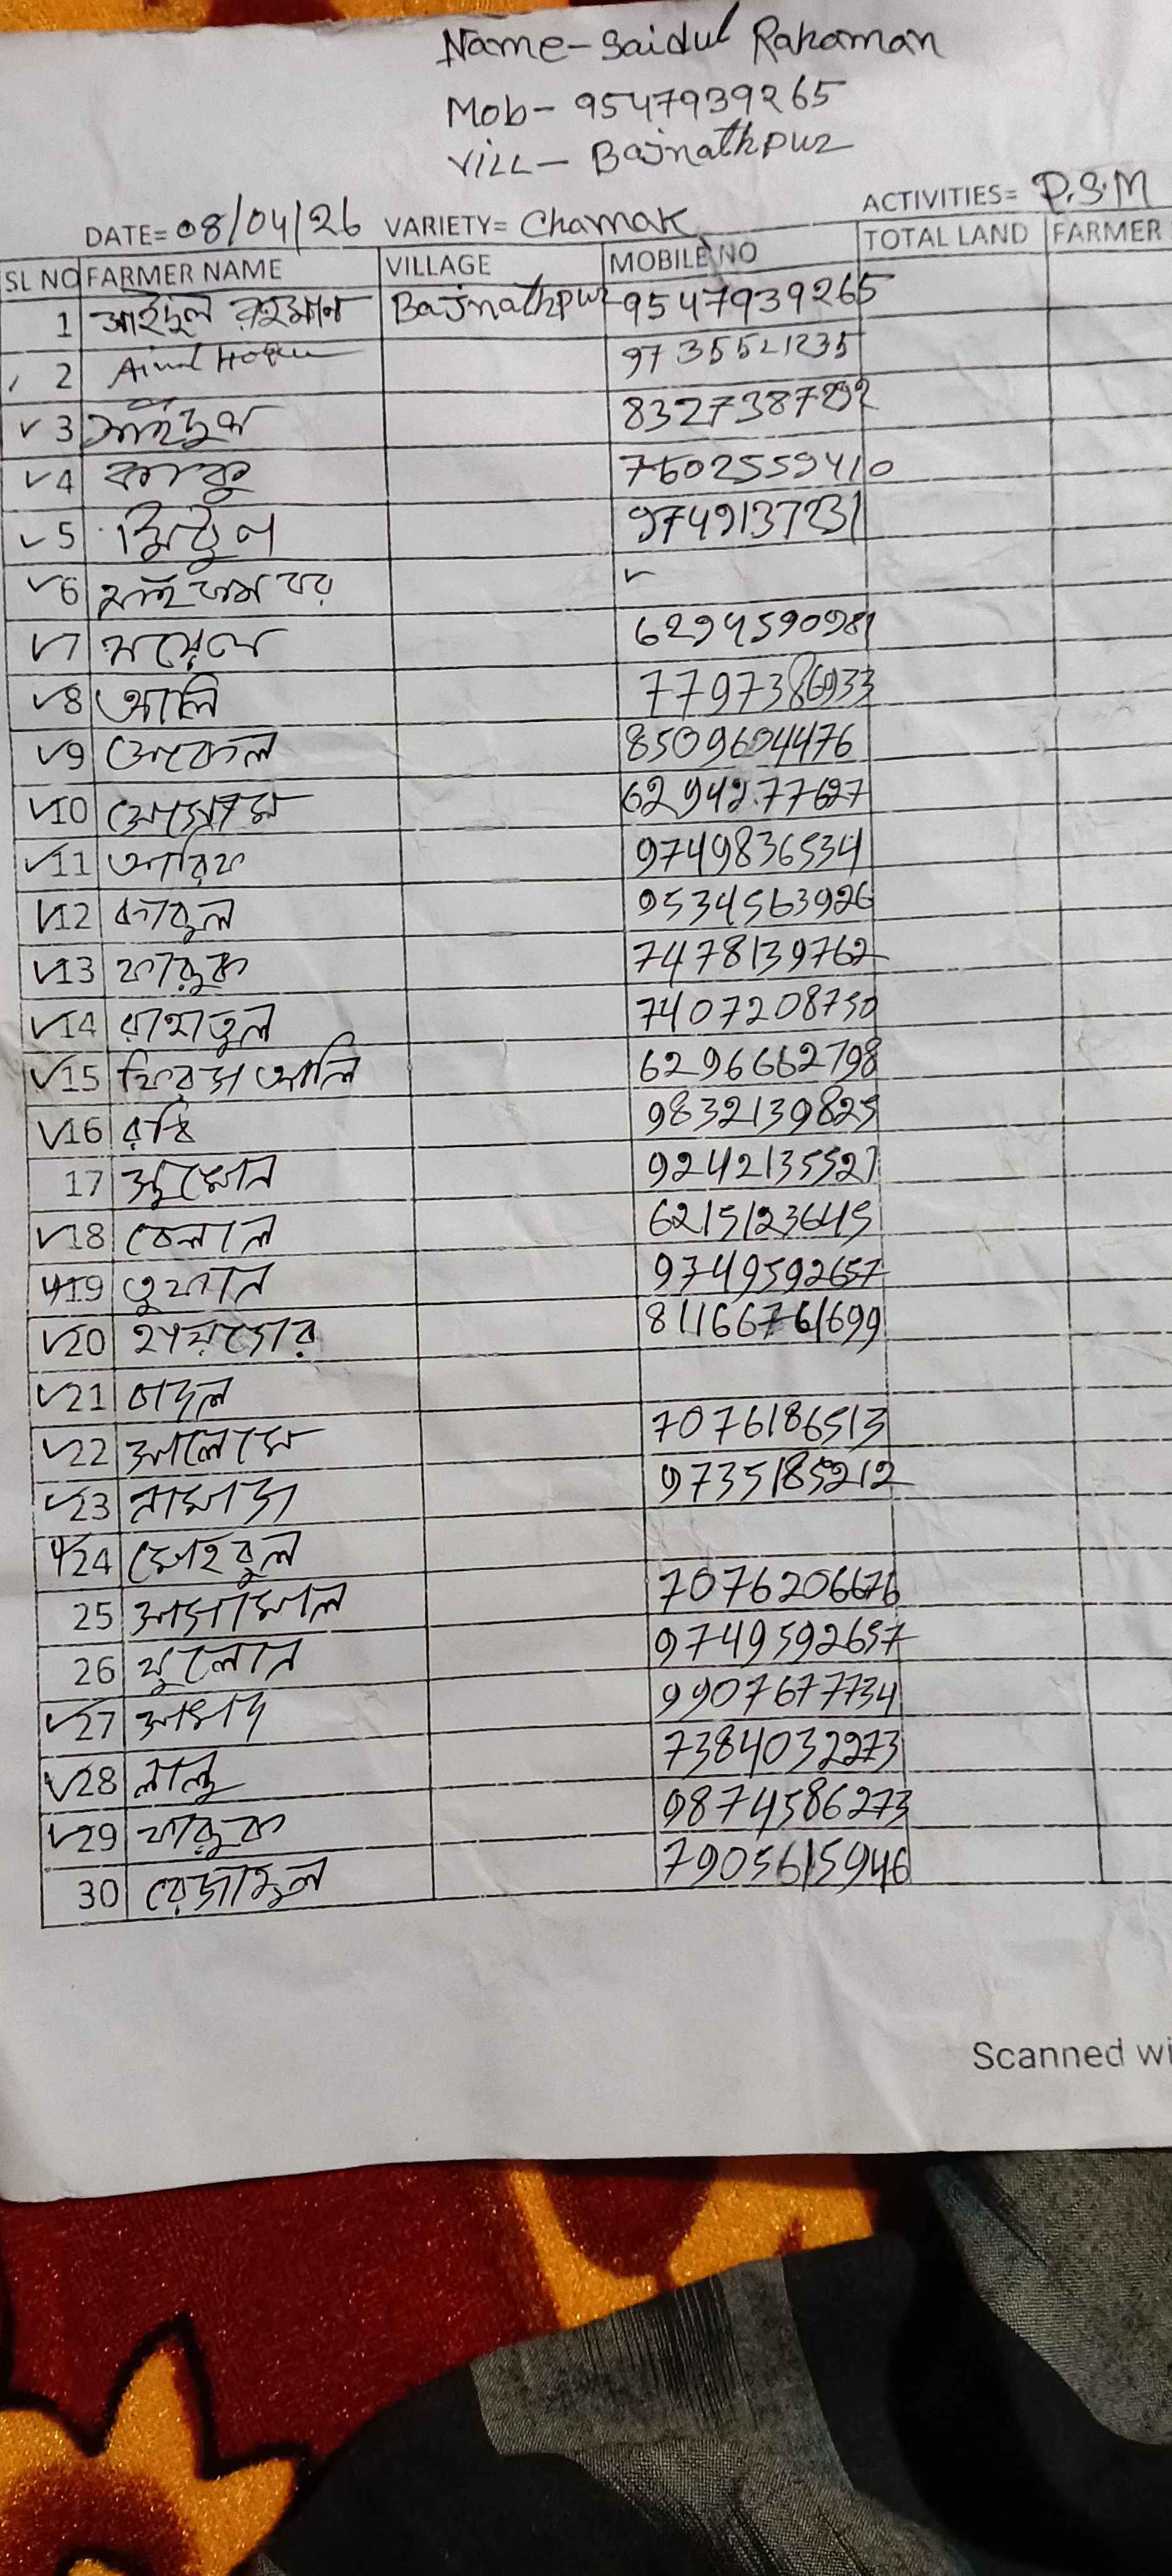 Name-Saidul Rahaman
Mob-9547939265
Vill-Bajnathpur
DATE=08/04/26 VARIETY=Chamak ACTIVITIES=P.S.M
SL NO FARMER NAME VILLAGE MOBILE NO TOTAL LAND FARMER
1 সাইদুল রহমান Bajnathpur 9547939265
2 Ainul Hoque 9735521235
3 সাইদুল
4 কালু 7602559410
5 মিঠুন 9749137231
6
7 6294590981
8 আলি 7797386933
9 8509604476
10 6294277627
11 আরিফ 9749836534
12 কাবুল 9534563926
13 ফারুক 7478139762
14 রাহাতুল 7407208750
15 আলি 6296662798
16 9832139825
17 সুমোন 9242135527
18 বেলাল 6215123645
19 তুফান 9749592657
20 81166761699
21 বাদল
22 সালেম 7076186513
23 নামাজ 9735185212
24 মোহবুল
25 জামাল 7076206676
26 9749592657
27 9907677734
28 লালু 7384032273
29 ফারুক 9874586273
30 রেজাবুল 7905615946
Scanned wi